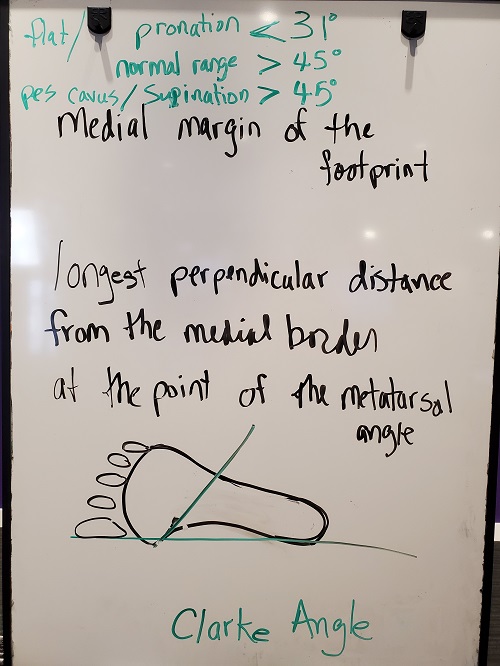 flat/ pronation < 31°
normal range > 45°
pes cavus/Supination > 45°
Medial margin of the
footprint
longest perpendicular distance
from the medial border
at the point of the metatarsal
angle
Clarke Angle